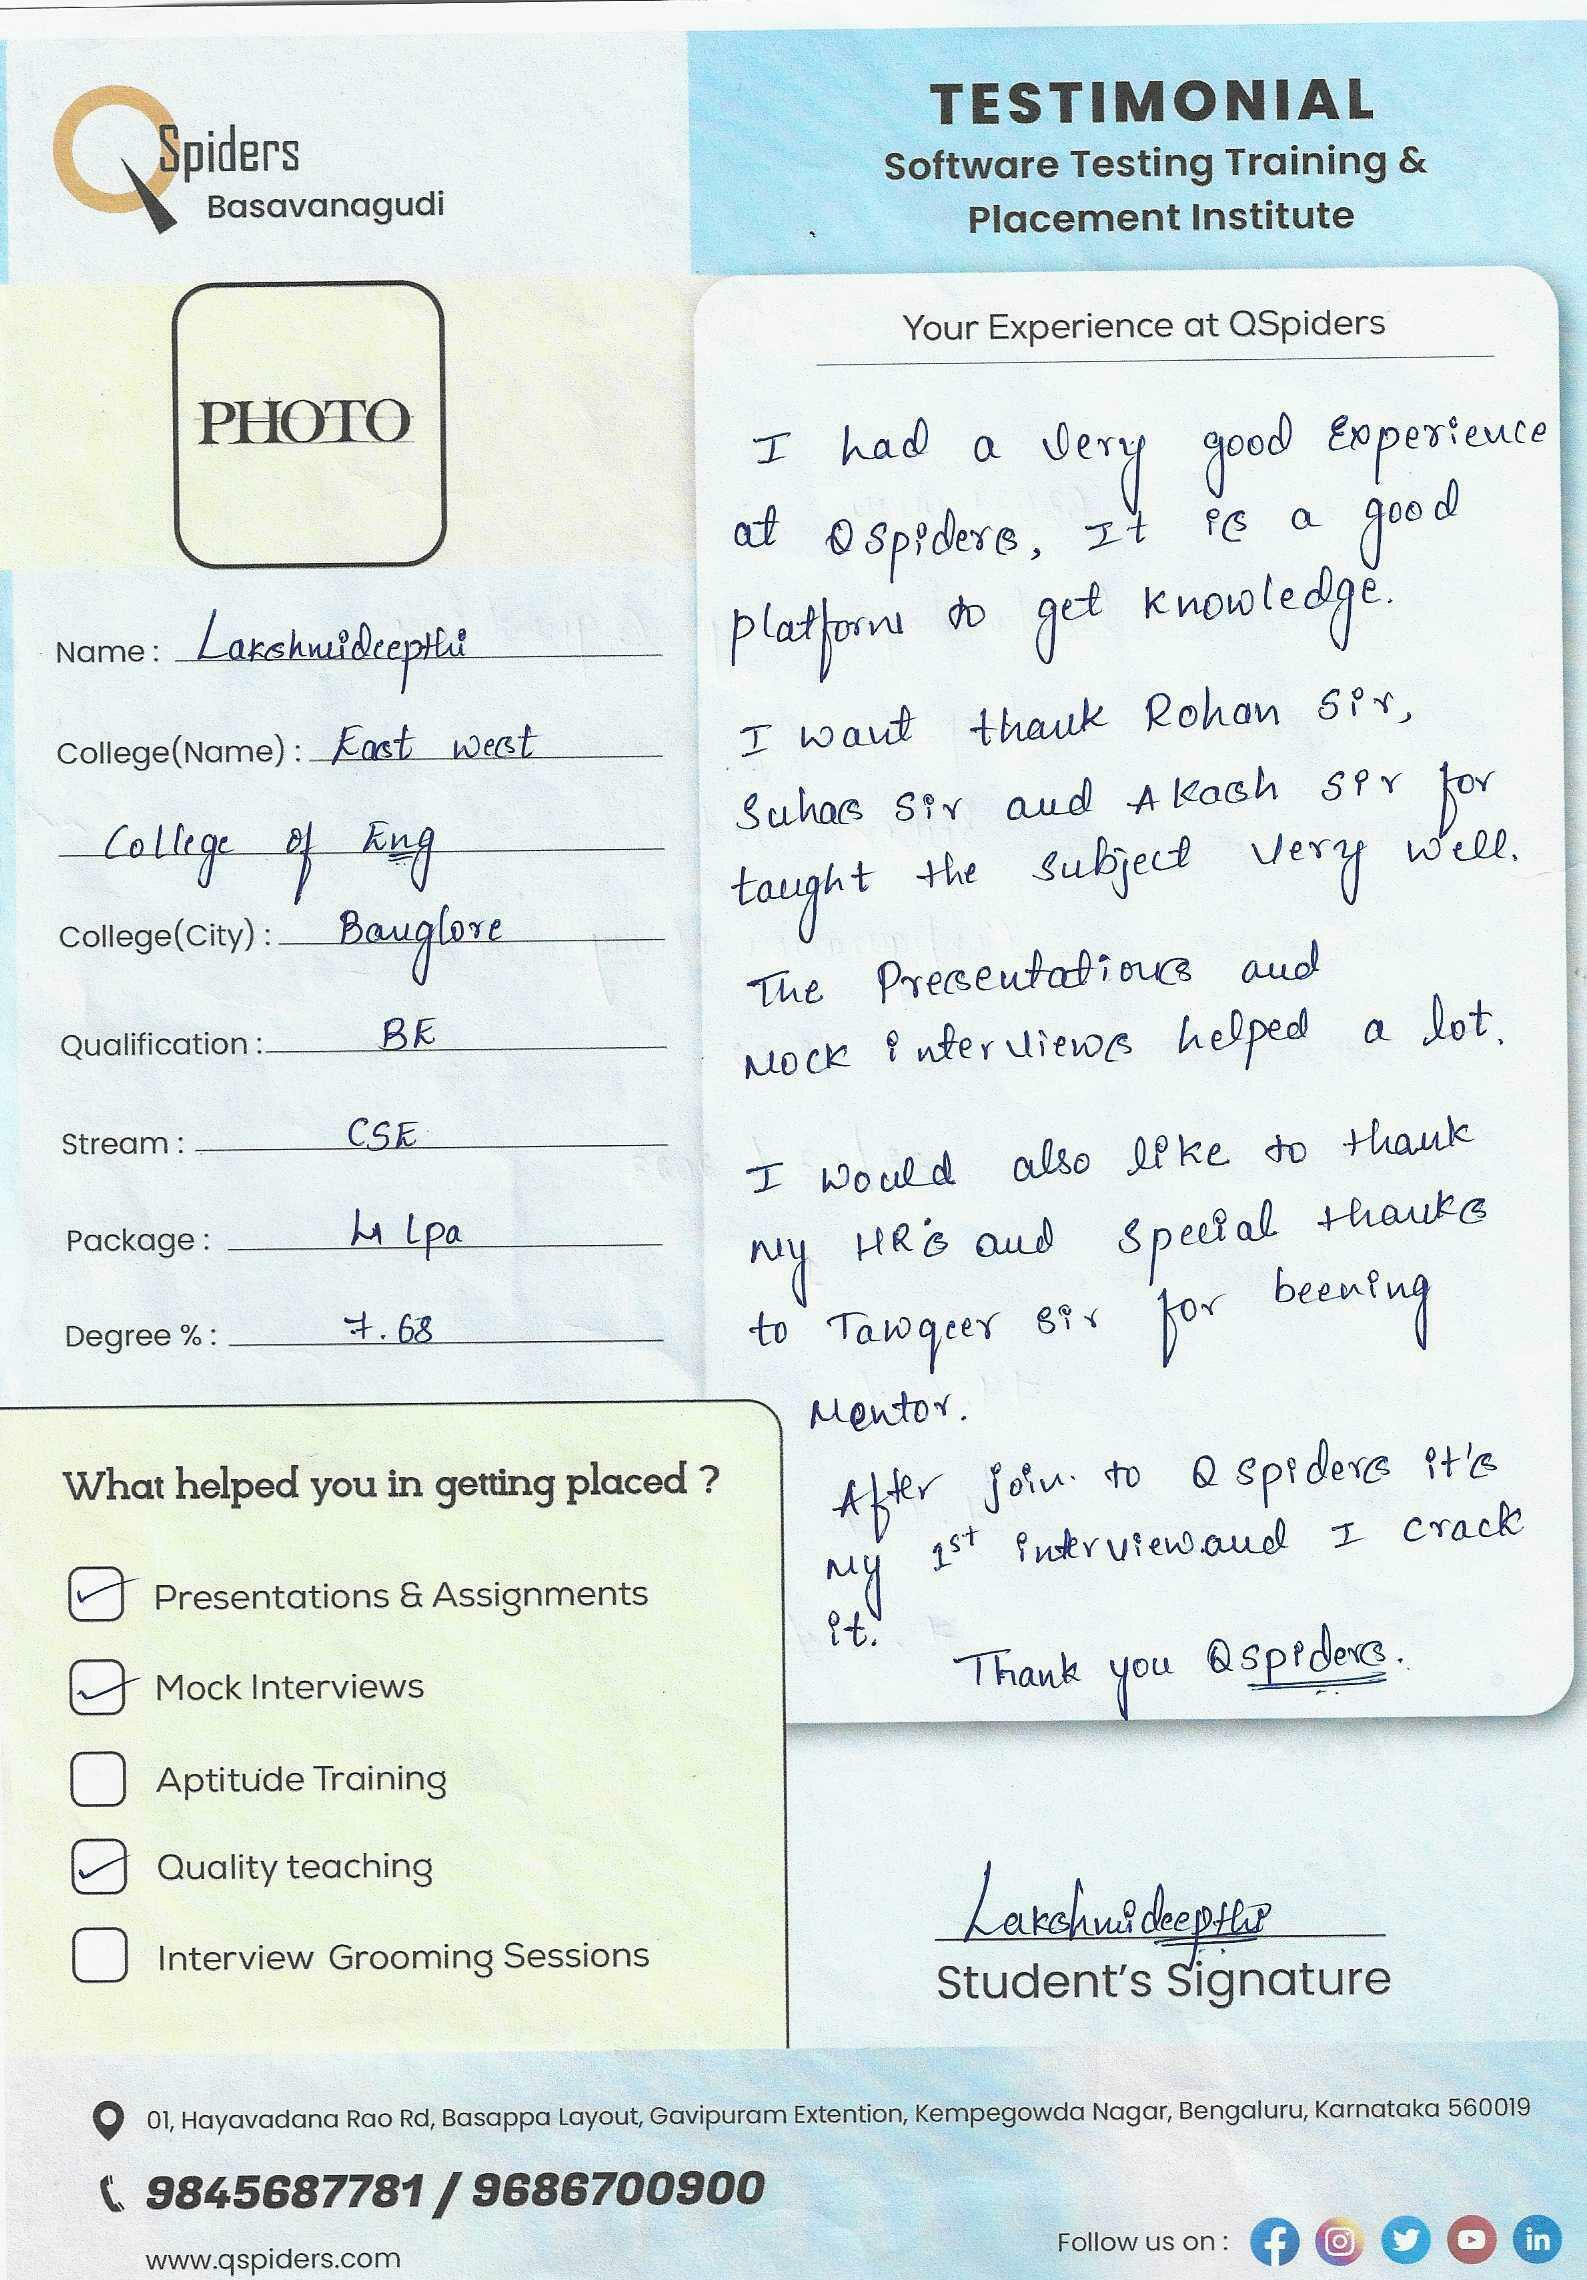 QSpiders
Basavanagudi
TESTIMONIAL
Software Testing Training &
Placement Institute
PHOTO
Name : Lakshmideepthi
College(Name) : East west
College of Eng
College(City) : Banglore
Qualification : BE
Stream : CSE
Package : 4 Lpa
Degree % : 7.68
Your Experience at QSpiders
I had a very good Experience
at QSpiders, It is a good
platform to get knowledge.
I want thank Rohan Sir,
Suhas Sir and Akash Sir for
taught the subject very well.
The Presentations and
Mock interviews helped a lot.
I would also like to thank
my HR's and Special thanks
to Tawqeer sir for beening
Mentor.
After join to QSpiders it's
my 1st interview and I crack
it.
Thank you QSpiders.
What helped you in getting placed ?
Presentations & Assignments
Mock Interviews
Aptitude Training
Quality teaching
Interview Grooming Sessions
Lakshmideepthi
Student's Signature
01, Hayavadana Rao Rd, Basappa Layout, Gavipuram Extention, Kempegowda Nagar, Bengaluru, Karnataka 560019
9845687781 / 9686700900
www.qspiders.com
Follow us on :